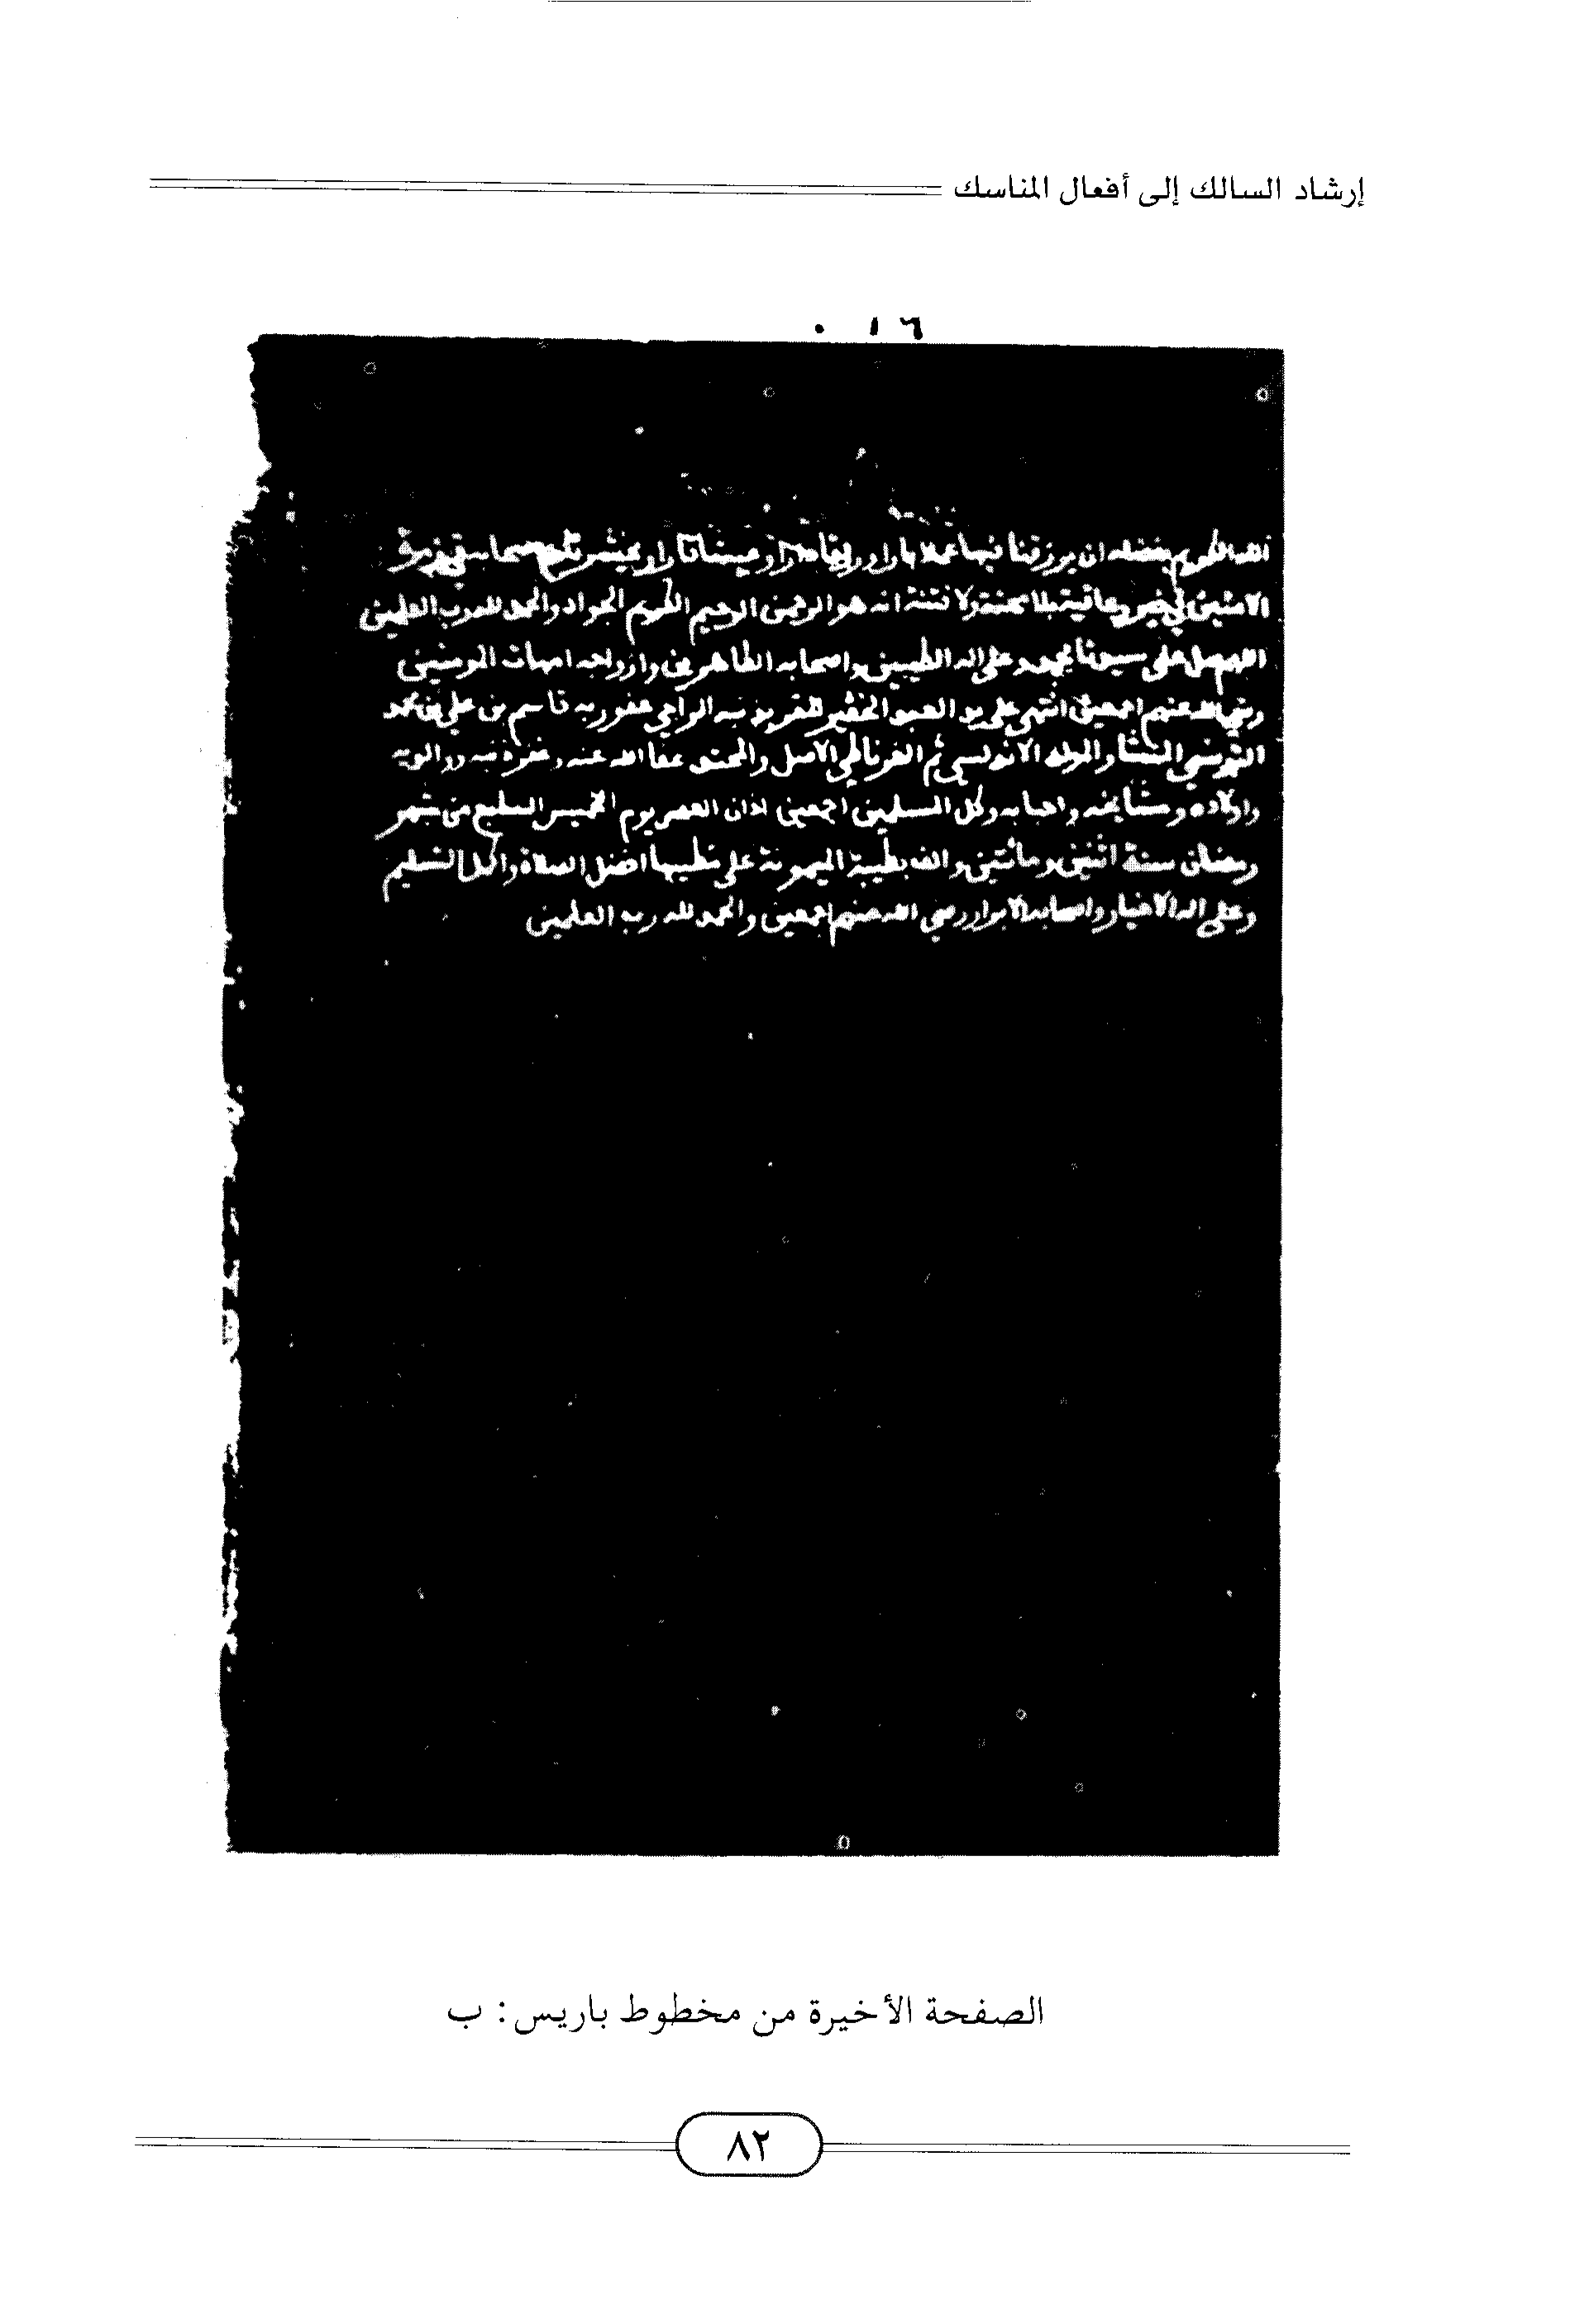 إرشاد السالك إلى أفعال المناسك
الله الكريم بفضله ان يرزقنا فيها عملا بارا ورزقا دارا وعيشا قارا
الامنين في خير وعافية بلا محنة ولا فتنة انه هو الرحمن الرحيم الكريم الجواد والحمد لله رب العلمين
اللهم صل على سيدنا محمد وعلى اله الطيبين واصحابه الطاهرين وازواجه امهات المومنين
عنهم اجمعين انتهى على يد العبد الفقير المقر بذنبه الراجي عفو ربه قاسم بن علي بن محمد
التونسي المنشا والمولد الاندلسي ثم الغرناطي الاصل والمحتد عفا الله عنه وغفر ذنبه ووالديه
واولاده ومشايخه واحبابه وكل المسلمين اجمعين اذان العصر يوم الخميس السابع من شهر
رمضان سنة اثنين ومائتين والف بطيبة الميمونة على مطيبها افضل الصلاة واكمل التسليم
وعلى اله الاخيار واصحابه الابرار رضي الله عنهم اجمعين والحمد لله رب العلمين
الصفحة الأخيرة من مخطوط باريس: ب
٨٢